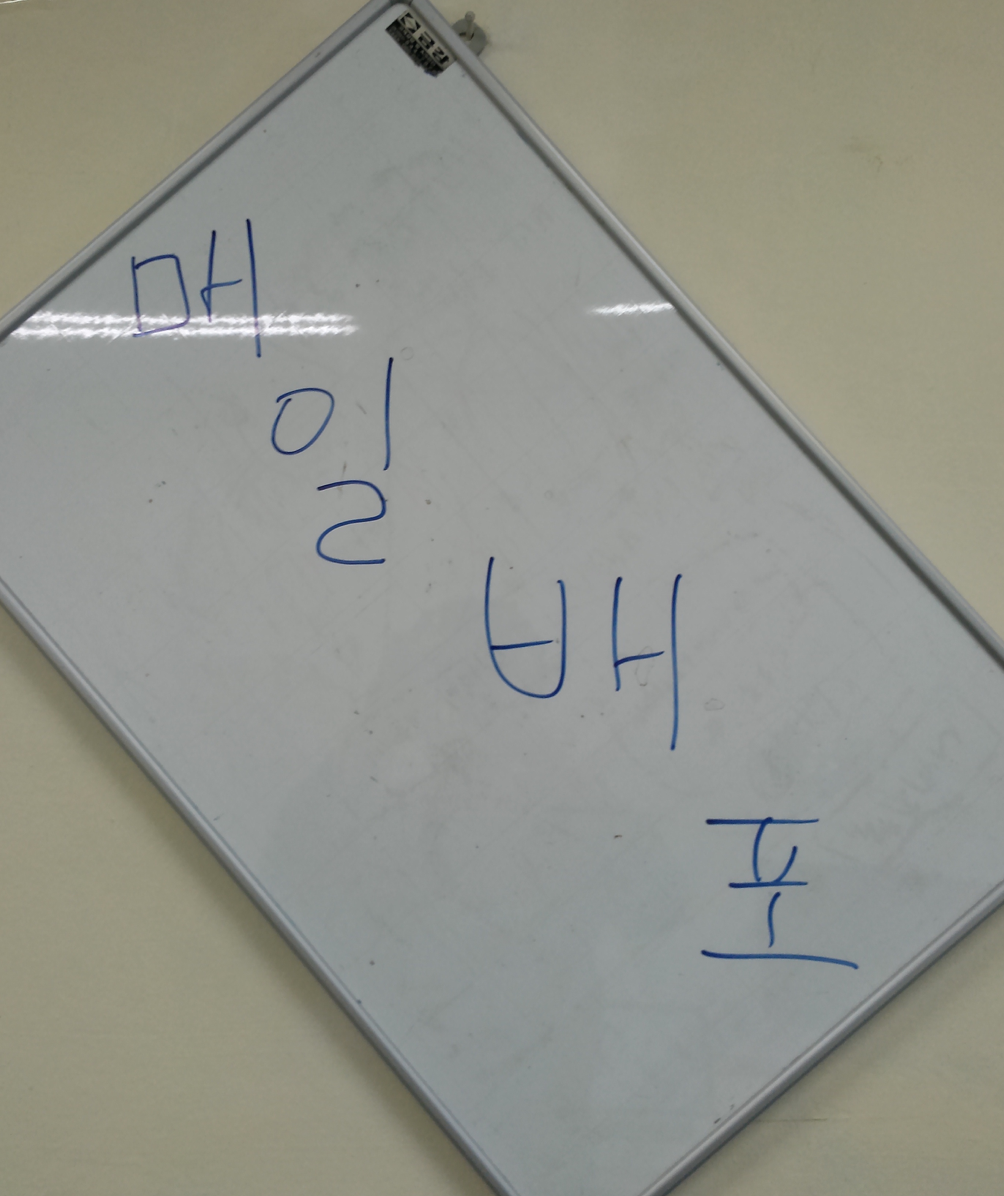 매일 배포